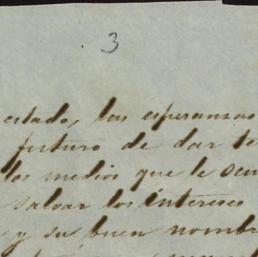 3
estado, las esperanzas
futuro de dar te
los medios que le ocu
salvar los intereses
y su buen nombre